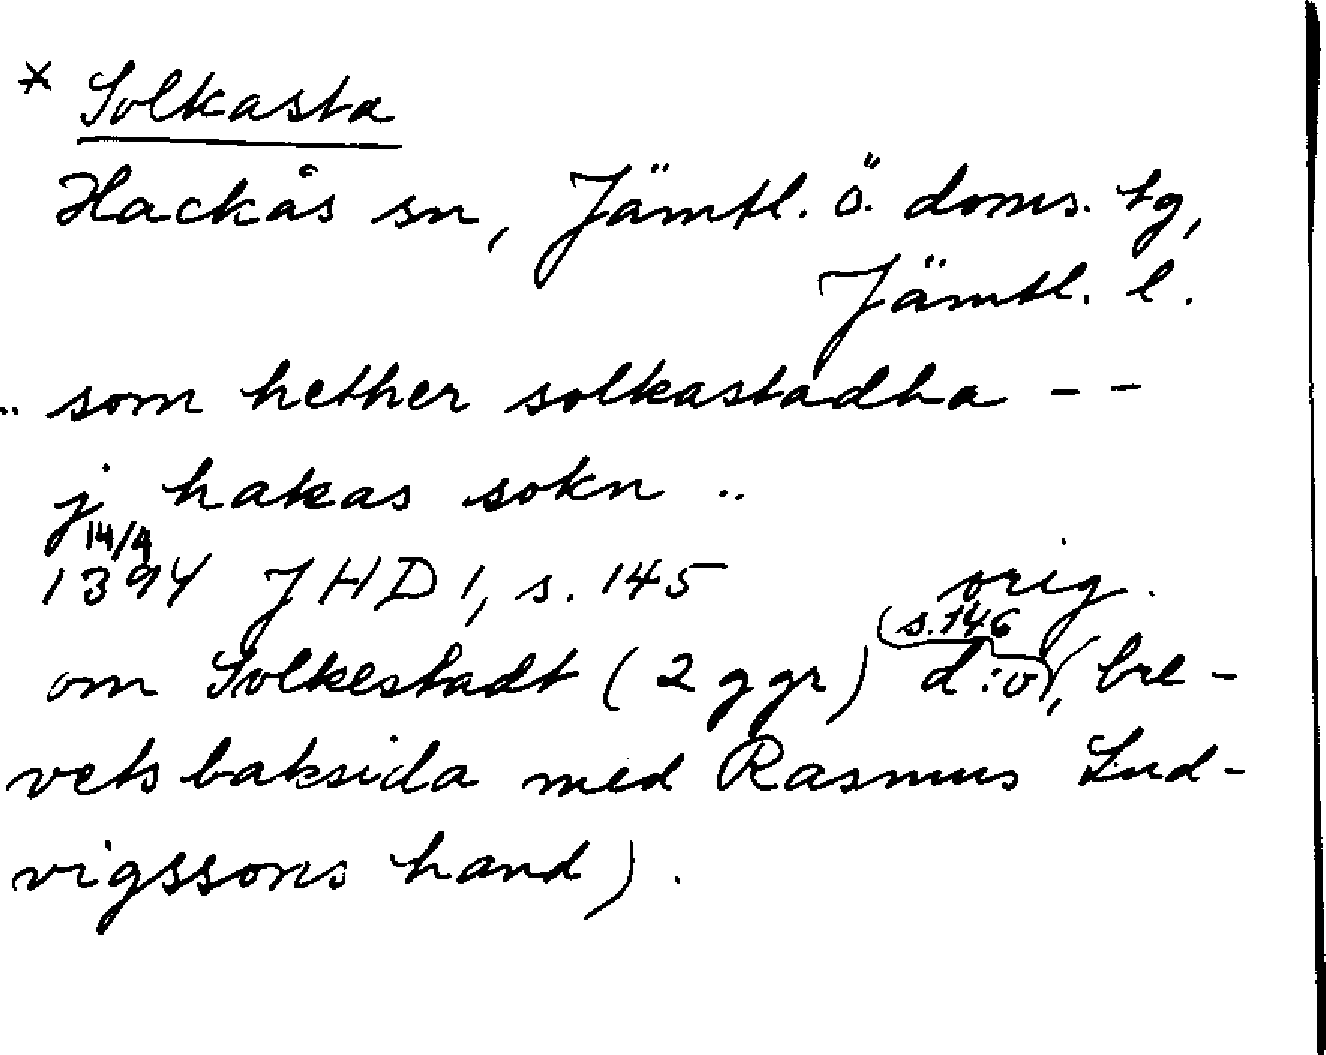 * Solkasta
Hackås sn, Jämtl. ö. doms. tg,
Jämtl. l.
.. som hether solkastadha - -
j hakas sokn ..
14/4
1394 JHD 1, s. 145 orig.
(s. 146
om Solkestadt (2 ggr) d:o, bre-
vets baksida med Rasmus Lud-
vigssons hand).